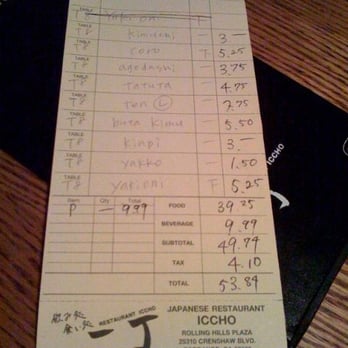 TABLE T8 Yakioni F
TABLE T8 kimuchi — 3.—
TABLE T8 coro F 5.25
TABLE T8 agedashi — 3.75
TABLE T8 tatuta — 4.75
TABLE T8 ton L — 7.75
TABLE T8 buta kimu — 5.50
TABLE T8 kinpi — 3.—
TABLE T8 yakko — 1.50
TABLE T8 yarioni F 5.25
Item Qty Total FOOD 39 75
P — 999
BEVERAGE 9.99
SUBTOTAL 49.74
TAX 4.10
TOTAL 53.84
飲み処
食い処
RESTAURANT ICCHO
一丁
JAPANESE RESTAURANT
ICCHO
ROLLING HILLS PLAZA
25310 CRENSHAW BLVD.
ICCHO